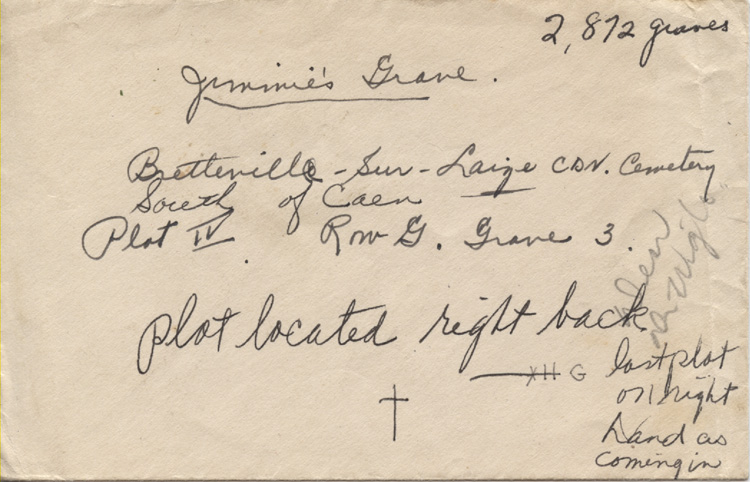 2,872 graves
Jimmie's Grave.
Bretteville-Sur-Laize CDN. Cemetery
South of Caen
Plot IV Row G. Grave 3.
plot located right back
XII G
last plot
on right
hand as
coming in